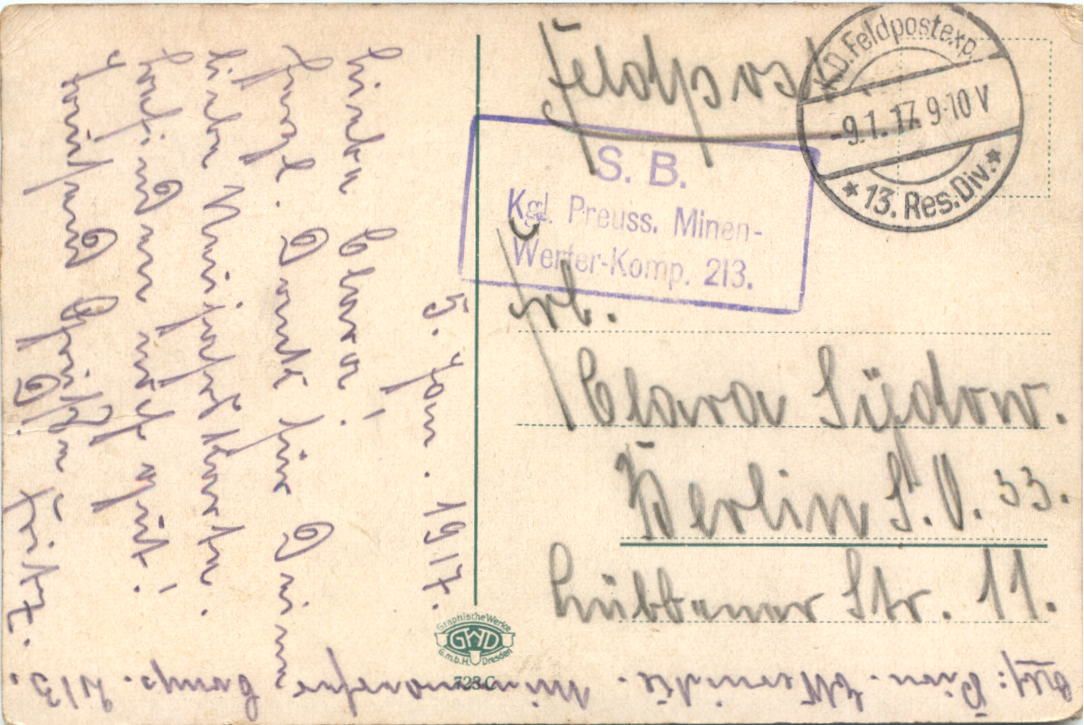 Feldpost
K.D. Feldpostexp.
-9.1.17. 9-10 V
* 13. Res. Div. *
S. B.
Kgl. Preuss. Minen-
Werfer-Komp. 213.
Frl.
Clara Sydow.
Berlin S.O. 33.
Lübbener Str. 11.
5. Jan. 1917.
Liebe Clara!
Herzl. Dank für Deine
liebe Neujahrskarte.
Befinden noch gut!
Dich Grüßen Fritz.
Abs: Pion. Minenwerfer Comp. 213.
Graphische Werke
GWD
G.m.b.H. Dresden
728 C